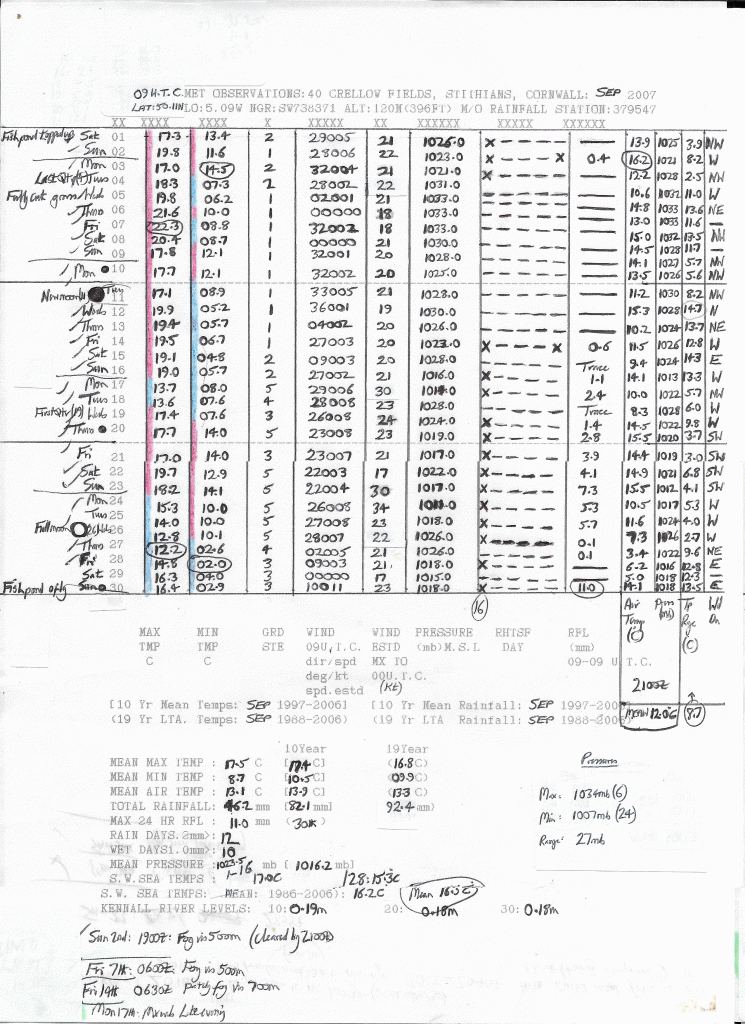 09 U.T.C. MET OBSERVATIONS: 40 CRELLOW FIELDS, STITHIANS, CORNWALL: SEP 2007
LAT:50.11N LO:5.09W NGR:SW738371 ALT:120M(396FT) M/O RAINFALL STATION:379547
XX XXXX XXXX X XXXXX XX XXXXXX XXXXX XXXXXX
Fishpond topped up Sat 01 17.3 13.4 2 29005 21 1026.0 X 13.9 1025 3.9 NW
Sun 02 19.8 11.6 1 28006 22 1023.0 X X 0.4 16.2 1021 8.2 W
Mon 03 17.0 14.5 2 32004 21 1021.0 X 12.2 1028 2.5 NW
Last Qtr Tues 04 18.3 07.3 2 28002 22 1031.0 10.6 1032 11.0 W
Weds 05 19.8 06.2 1 02001 21 1033.0 14.8 1033 13.6 NE
Thurs 06 21.6 10.0 1 00000 18 1033.0 13.0 1033 11.6 —
Fri 07 22.3 08.8 1 32002 18 1033.0 15.0 1032 13.5 NW
Sat 08 20.4 08.7 1 00000 21 1030.0 14.5 1028 11.7 —
Sun 09 17.8 12.1 1 32001 20 1028.0 14.1 1027 5.7 NW
Mon 10 17.7 12.1 1 32002 20 1025.0 13.5 1026 5.6 NW
New moon Tues 11 17.1 08.9 1 33005 21 1028.0 11.2 1030 8.2 NW
Weds 12 19.9 05.2 1 36001 19 1030.0 15.3 1028 14.7 N
Thurs 13 19.4 05.7 1 04002 20 1026.0 10.2 1024 13.7 NE
Fri 14 19.5 06.7 1 27003 20 1023.0 X X 0.6 11.5 1026 12.8 W
Sat 15 19.1 04.8 2 09003 20 1028.0 X Trace 9.4 1024 14.3 E
Sun 16 19.0 05.7 2 27002 21 1016.0 X 1.1 14.1 1013 13.3 W
Mon 17 13.7 08.0 5 29006 30 1014.0 X 2.4 10.0 1022 5.7 NW
Tues 18 13.6 07.6 4 28008 23 1028.0 Trace 8.3 1028 6.0 W
First Qtr (19) Weds 19 17.4 07.6 3 26008 24 1024.0 X 1.4 14.5 1022 9.8 W
Thurs 20 17.7 14.0 5 23008 23 1019.0 X 2.8 15.5 1020 3.7 SW
Fri 21 17.0 14.0 3 23007 21 1017.0 X 3.9 14.4 1019 3.0 SW
Sat 22 19.7 12.9 5 22003 17 1022.0 X 4.1 14.9 1021 6.8 SW
Sun 23 18.2 14.1 5 22004 30 1017.0 X 7.3 15.5 1012 4.1 SW
Mon 24 15.3 10.0 5 26008 34 1011.0 X 5.3 10.5 1017 5.3 W
Tues 25 14.0 10.0 5 27008 23 1018.0 X 5.7 11.6 1024 4.0 W
Full moon Weds 26 12.8 10.1 5 28007 22 1026.0 X 0.1 7.3 1026 2.7 W
Thurs 27 12.2 02.6 4 02005 21 1026.0 X 0.1 3.4 1022 9.6 NE
Fri 28 14.8 02.0 3 09003 21 1018.0 X 6.2 1016 12.8 E
Sat 29 16.3 04.0 3 00000 17 1015.0 X 5.0 1018 12.3 —
Sun 30 16.4 02.9 3 10011 23 1018.0 X 11.0 14.1 1018 13.5 E
16
Air Temp (C) Press (mb) Tp Rge (C) Wd Dn
MAX MIN GRD WIND WIND PRESSURE RHTSF RFL
TMP TMP STE 09U.T.C. ESTD (mb)M.S.L DAY (mm)
C C dir/spd MX TO 09-09 U.T.C.
deg/kt 00U.T.C.
spd.estd (Kt)
2100Z
[10 Yr Mean Temps: SEP 1997-2006] [10 Yr Mean Rainfall: SEP 1997-2006]
(19 Yr LTA. Temps: SEP 1988-2006) (19 Yr LTA Rainfall: SEP 1988-2006)
MEAN 12.06 8.7
10Year 19Year
MEAN MAX TEMP : 17.5 C [17.4 C] (16.8 C)
MEAN MIN TEMP : 8.7 C [10.5 C] (09.9 C)
MEAN AIR TEMP : 13.1 C [13.9 C] (13.3 C)
TOTAL RAINFALL: 46.2 mm [82.1 mm] (92.4 mm)
MAX 24 HR RFL : 11.0 mm (30th)
RAIN DAYS.2mm>: 12
WET DAYS1.0mm>: 10
MEAN PRESSURE : 1023.5 mb [ 1016.2 mb]
S.W.SEA TEMPS: 1-16 17.0C 128: 15.3C
S.W. SEA TEMPS: MEAN: 1986-2006): 16.2C Mean 16.3C
KENNALL RIVER LEVELS: 10: 0.19m 20: 0.18m 30: 0.18m
Pressures
Max: 1034mb (6)
Min: 1007mb (24)
Range: 27mb
Sun 2nd: 1900Z: Fog vis 500m (cleared by 2100Z)
Fri 7th: 0600Z: Fog vis 500m
Fri 14th 0630Z patchy fog vis 700m
Mon 17th: